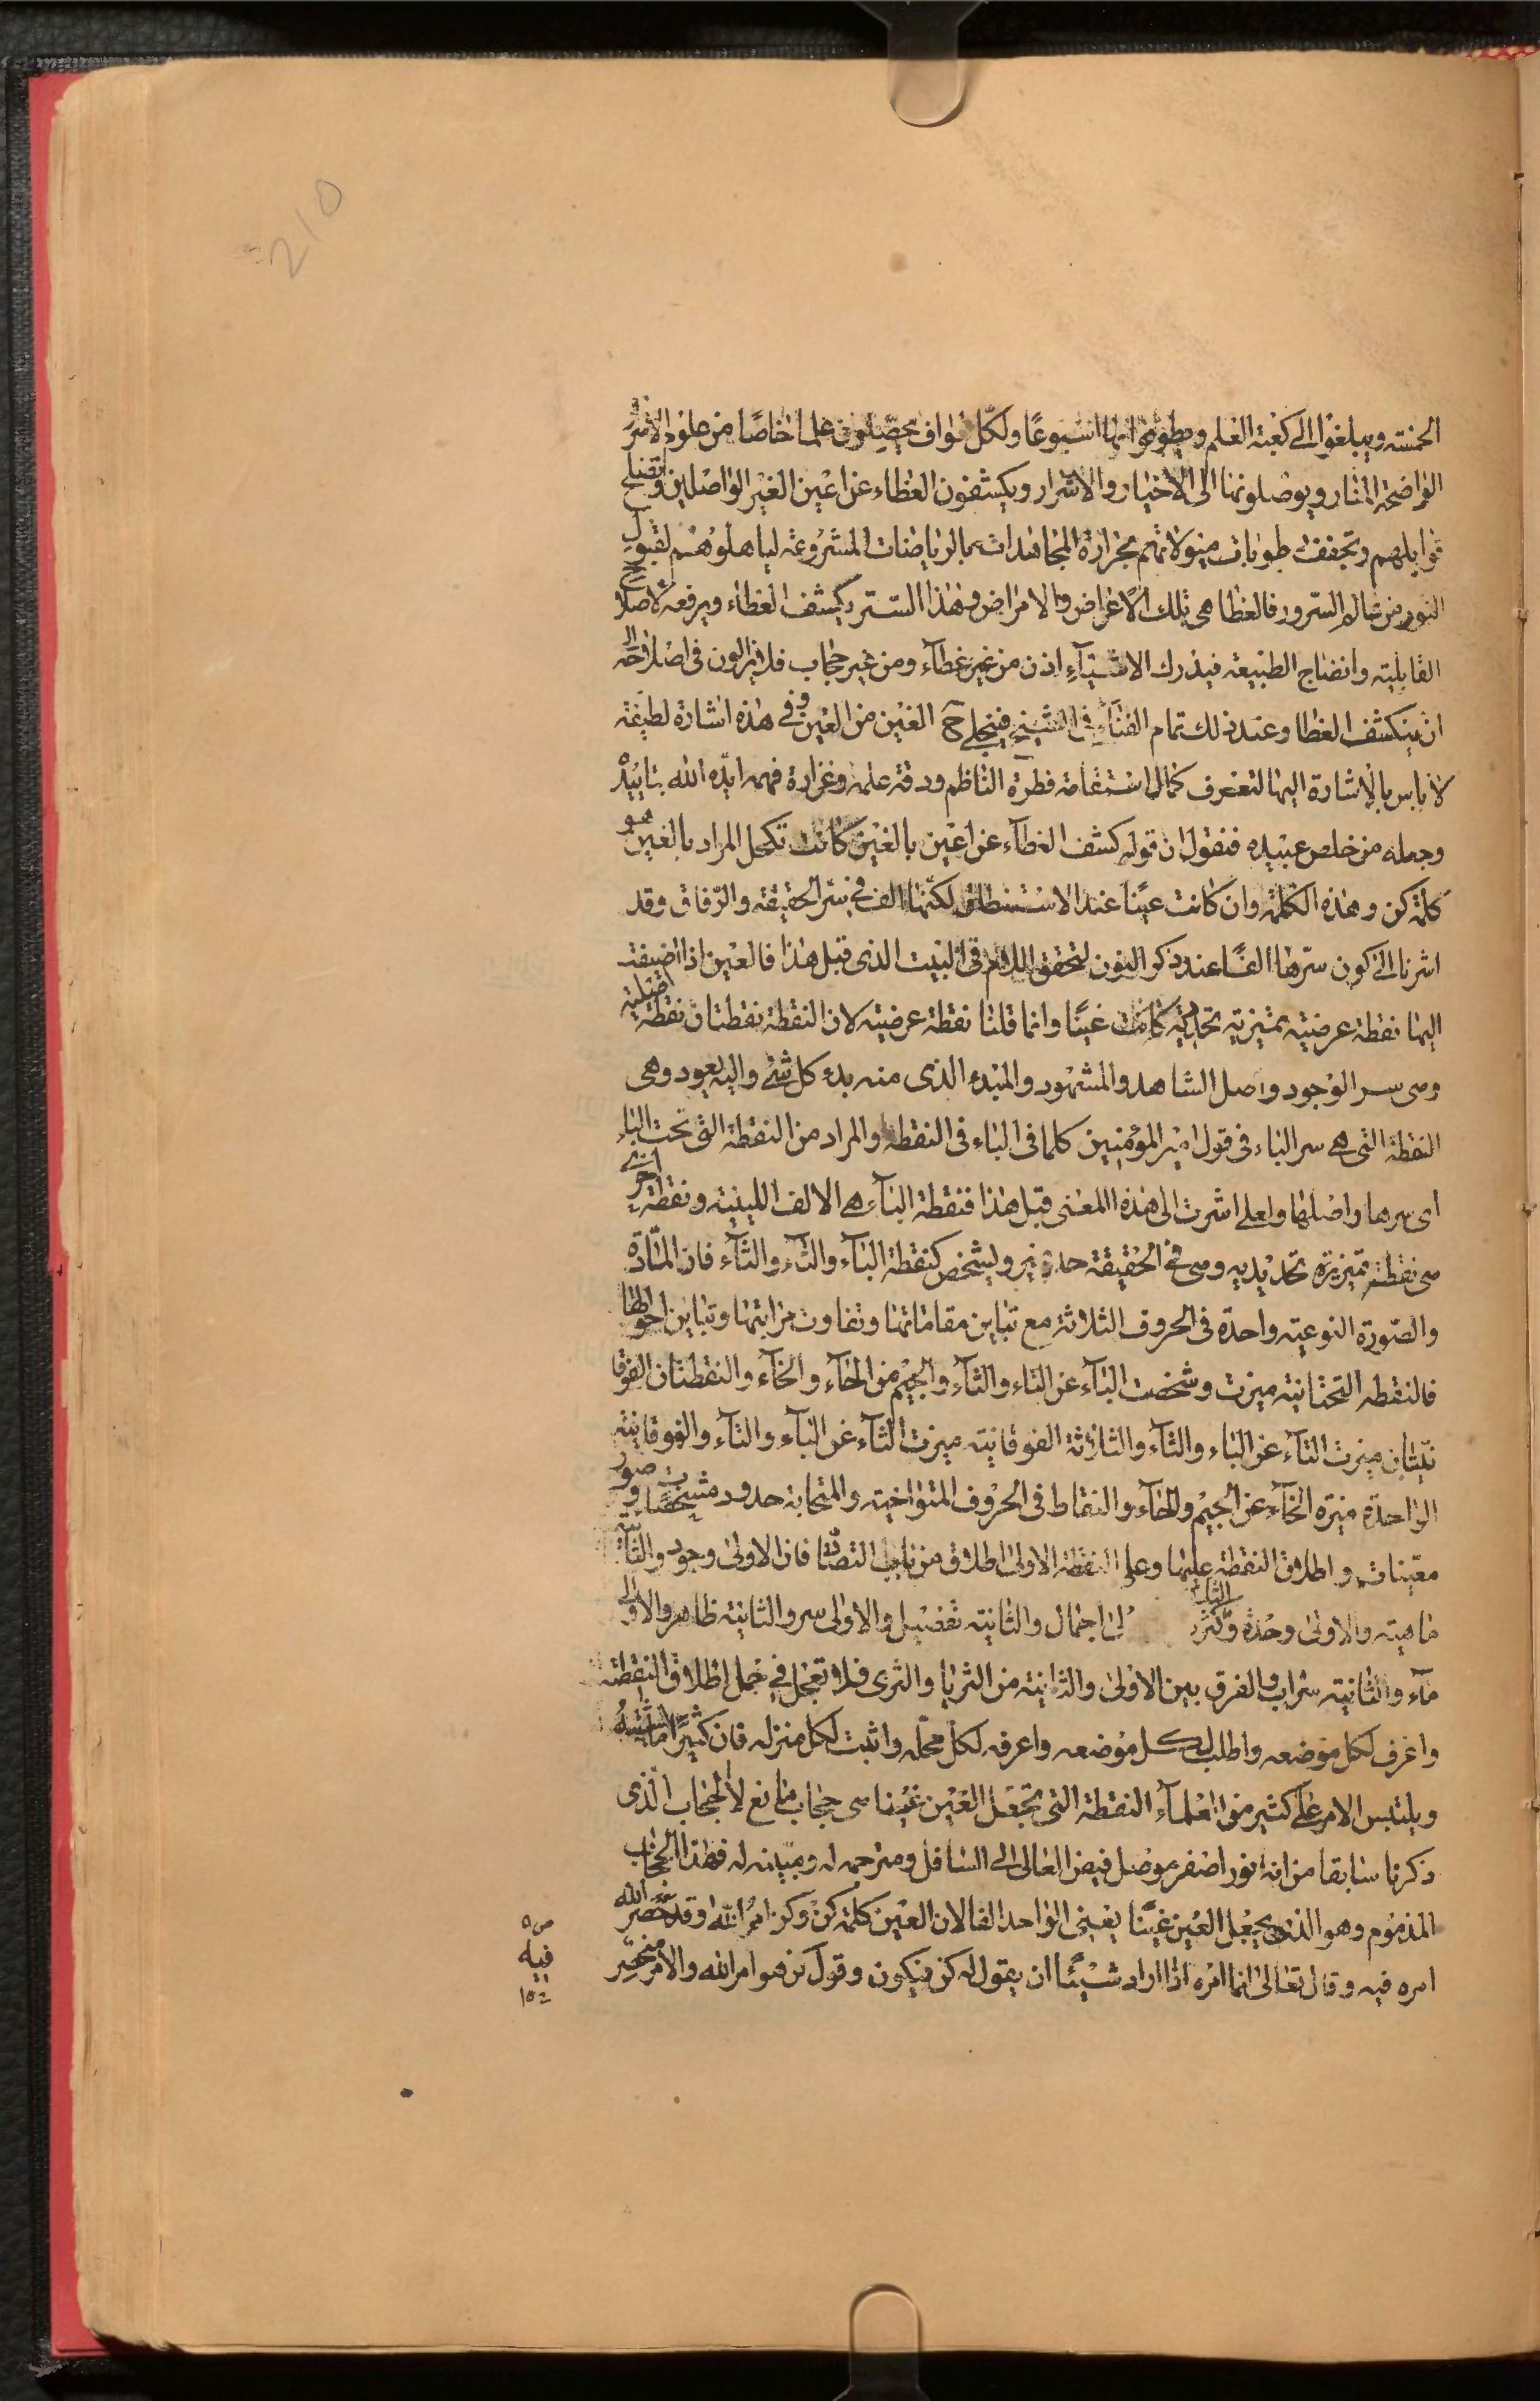 210
الخمسة ويبلغوا الى كعبة العلم ويطوفوا بها اسبوعًا ولكل طواف يحصّلون علما خاصًا من علوم الاسرار
الواضحة المنار ويوصلونها الى الاخيار والاشرار ويكشفون الغطاء عن اعين الغير الواصلين وتنضج
قوابلهم وتجفف رطوبات هيولاتهم بحرارة المجاهدات بالرياضات المشروعة ليتاهلوهم لقبول
النور من عالم السرور فالغطا هي تلك الاعراض والامراض وهذا الستر يكشف الغطاء ويرفعه لاصلاح
القابلية وانضاج الطبيعة فيدرك الاشيآء اذن من غير غطآء ومن غير حجاب فلا يزالون في اصلاحه الى
ان ينكشف الغطا وعند ذلك تمام الفنآء في الشيخ فينجلي ح الغين من العين وفي هذه اشارة لطيفة
لا باس بالاشارة اليها لتعرف كمال استقامة فطرة الناظم ودقة علمه وغزارة فهمه ايّده الله بتاييده
وجعله من خلص عبيده فنقول ان قوله كشف الغطآء عن اعين بالغين كانت تكحل المراد بالعين هو
كلمة كن وهذه الكلمة وان كانت عينا عند الاستنطاق لكنها الف في سر الحقيقة والزفاق وقد
اشرنا الى كون سترها الفًا عند ذكر النون لتحقق اللام في البيت الذي قبل هذا فالعين اذا اضيفت
اليها نقطة عرضية تمييزية تحديدية كانت غينًا وانما قلنا نقطة عرضية لان النقطة نقطتان نقطة اصلية
وهي سر الوجود واصل الشاهد والمشهود والمبدء الذي منه بدء كل شئ واليه يعود وهي
النقطة التي هي سر الباء في قول امير المؤمنين كلما في الباء في النقطة والمراد من النقطة التي تحت الباء
اي سرها واصلها ولعلي اشرت الى هذه المعنى قبل هذا فنقطة البآء هي الالف اللينية ونقطة اخرى
هي نقطة تمييزية تحديدية وهي في الحقيقة حد تميز وتشخص كنقطة البآء والتآء والثآء فان المادّة
والصورة النوعية واحدة في الحروف الثلاثة مع تباين مقاماتها وتفاوت مراتبها وتباين احوالها
فالنقطة التحتانية ميزت وشخصت البآء عن التاء والثآء والجيم من الحآء والخآء والنقطتان الفوقا
نيتان ميزت التآء عن الباء والثآء والثلاثة الفوقانية ميزت الثآء عن البآء والتآء والفوقانية
الواحدة ميزة الخآء عن الجيم والحآء والنقاط في الحروف المتواخية والمتحابة حدود مشخصات وصور
معينات واطلاق النقطة عليها وعلى النقطة الاولى اطلاق من باب التضاد فان الاولى وجود والثانية
ماهية والاولى وحدة والثانية كثرة لى اجمال والثانية تفضيل والاولى سر والثانية ظاهر والاولى
مآء والثانية سراب والفرق بين الاولى والثانية من الثريا والثرى فلا تعجل في حمل اطلاق النقطة
واعرف لكل موضعه واطلب لكل موضعه واعرف لكل محلّه واثبت لكل منزله فان كثيرًا ما يشتبه
ويلتبس الامر على كثير من العلمآء النقطة التي تجعل العين غينا هي حجاب مانع لا الحجاب الذي
ذكرنا سابقا من انه نور اصفر موصل فيض العالى الى السافل ومترجم له ومبينه له فهذا الحجاب
المذموم وهو الذي يجعل العين غينا يغني الواحد الفا لان العين كلمة كن وكن امر الله وقد حصر الله
امره فيه وقال تعالى انما امره اذا اراد شيئًا ان يقول له كن فيكون وقول كن هو امر الله والامر منحصر
فيه